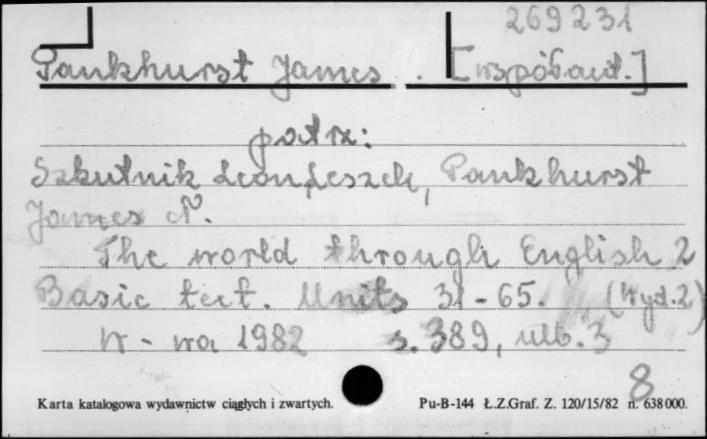 269231
Pankhurst James. [współaut.]
patrz:
Szkutnik Leon Leszek, Pankhurst
James N.
The world through English 2
Basic text. Units 31-65. (Wyd.2)
W-wa 1982 s. 389, ulb. 3
8
Karta katalogowa wydawnictw ciągłych i zwartych. Pu-B-144 Ł.Z.Graf. Z. 120/15/82 n. 638000.